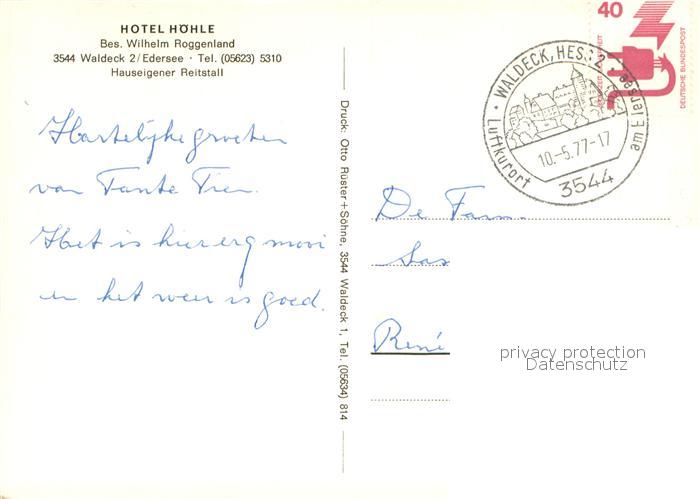 HOTEL HÖHLE
Bes. Wilhelm Roggenland
3544 Waldeck 2/Edersee · Tel. (05623) 5310
Hauseigener Reitstall
Hartelijke groeten
van Tante Trien.
Het is hier erg mooi
en het weer is goed.
Druck: Otto Rüster+Söhne, 3544 Waldeck 1, Tel. (05634) 814
40
DEUTSCHE BUNDESPOST
WALDECK, HESS 2
am Edersee
Luftkurort
10.-5.77-17
3544
De Fam.
Sas
René
privacy protection
Datenschutz